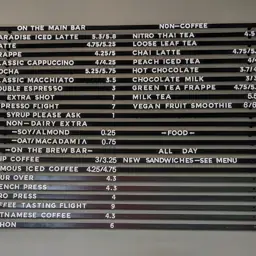 ON THE MAIN BAR
PARADISE ICED LATTE 5.3/5.8
LATTE 4.75/5.25
FRAPPE 4.25/5
CLASSIC CAPPUCCINO 4/4.25
MOCHA 5.25/5.75
CLASSIC MACCHIATO 3.5
DOUBLE ESPRESSO 3
EXTRA SHOT 1
ESPRESSO FLIGHT 7
SYRUP PLEASE ASK 1
NON-DAIRY EXTRA
-SOY/ALMOND 0.25
-OAT/MACADAMIA 0.75
-ON THE BREW BAR-
DRIP COFFEE 3/3.25
FAMOUS ICED COFFEE 4.25/4.75
POUR OVER 4.3
FRENCH PRESS 4.3
AERO PRESS 4
COFFEE TASTING FLIGHT 9
VIETNAMESE COFFEE 4.3
SIPHON 6
NON-COFFEE
NITRO THAI TEA
LOOSE LEAF TEA
CHAI LATTE 4.75/
PEACH ICED TEA 4/
HOT CHOCOLATE
CHOCOLATE MILK
GREEN TEA FRAPPE 4.75/5
MILK TEA
VEGAN FRUIT SMOOTHIE
-FOOD-
ALL DAY
NEW SANDWICHES-SEE MENU